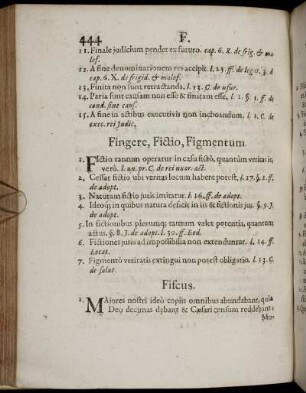 444 F.
11. Finale judicium pendet ex futuro. cap. 6. X. de frig. & ma-
lef.
12. A fine denominationem rei accipit. l. 25. ff. de legat. 3.
cap. 6. X. de frigid. & malef.
13. Finita non sunt retractanda. l. 13. C. de usur.
14. Paria sunt causam non esse & finitam esse. l. 2. §. 1. ff. de
cond. sine caus.
15. A fine in actibus executivis non inchoandum. l. 1. C. de
exec. rei judic.
Fingere, Fictio, Figmentum.
1. Fictio tantum operatur in casu fictô, quantùm veritas in
verò. l. un. pr. C. de rei uxor. act.
2. Cessat fictio ubi veritas locum habere potest, l. 17. §. 1. ff.
de adopt.
3. Naturam fictio juris imitatur. l. 16. ff. de adopt.
4. Ideoq; in quibus natura deficit in iis & fictionis jus. §. 9. J.
de adopt.
5. In fictionibus plerumq; tantum valet potentia, quantum
actus. §. 8. J. de adopt. l. 30. ff. Eod.
6. Fictiones juris ad impossibilia non extenduntur. l. 14. ff.
Locat.
7. Figmentò veritatis extingui non potest obligatio. l. 13. C.
de solut.
Fiscus.
1. MAjores nostri ideò copiis omnibus abundabant, quia
Deo decimas dabant & Cæsari censum reddebant
Mo-